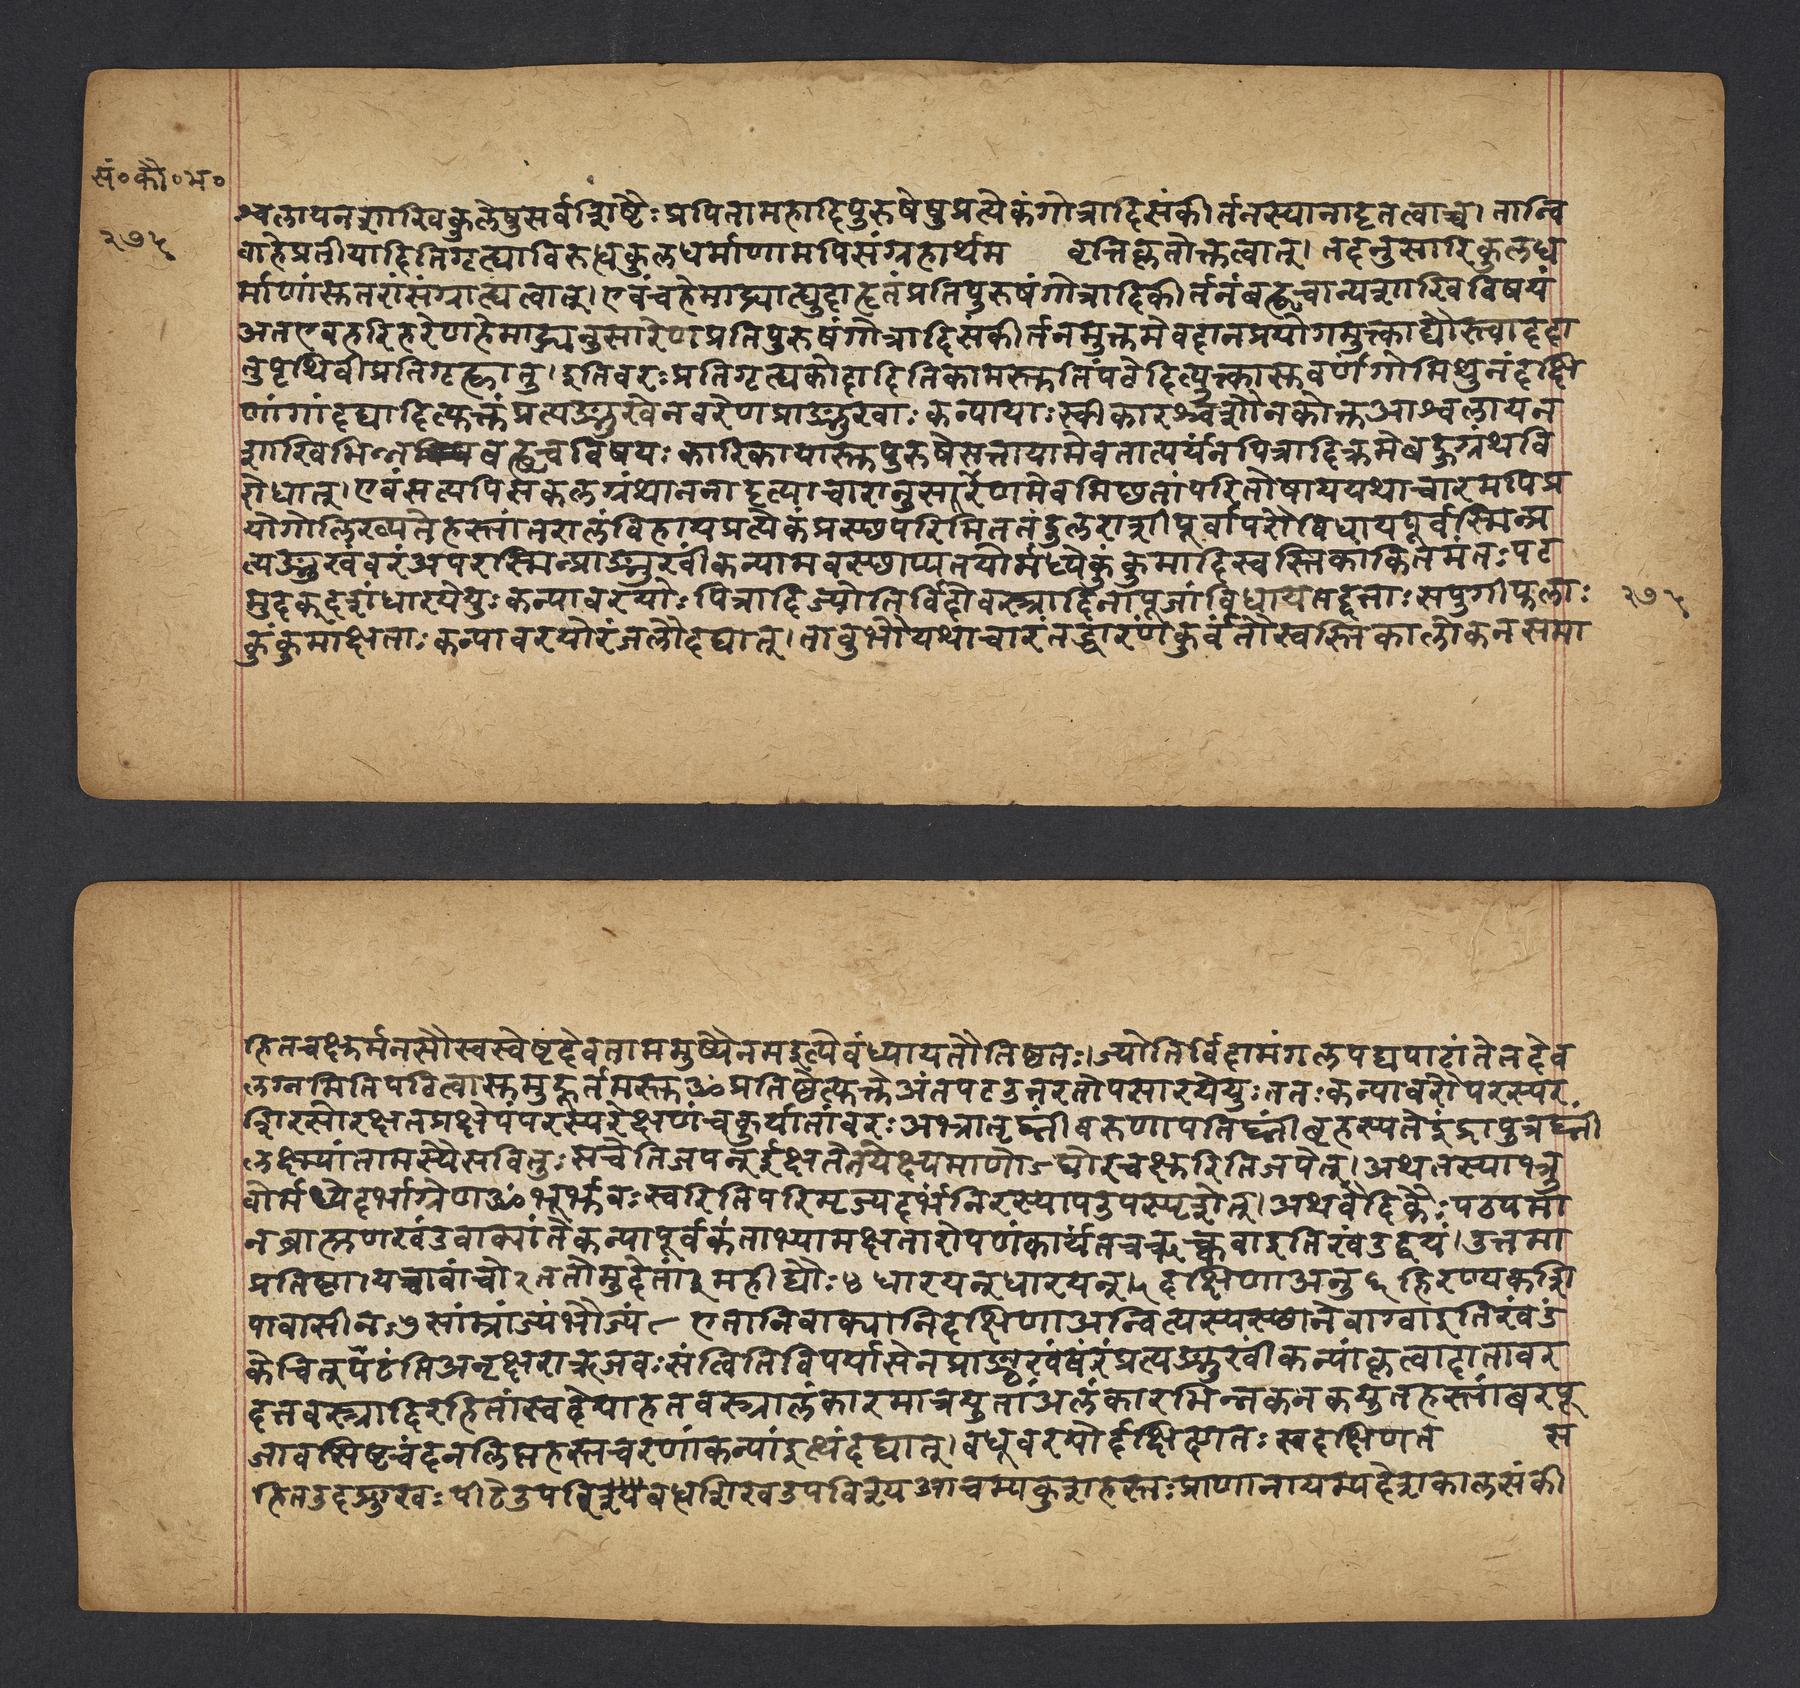 सं॰कौ॰भ॰
२७५
श्वलायनशाखिकुलेषुसर्वशिष्टैःप्रपितामहादिपुरुषेषुप्रत्येकंगोत्रादिसंकीर्तनस्यानादृतत्वाच्च। तान्वि
वाहेप्रतीयादितिगृह्याविरुद्धकुलधर्माणामपिसंग्रहार्थम वृत्तिकृतोक्तत्वात्। तदनुसारिकुलध
र्माणांसुतरांसंग्राह्यत्वात्। एवंचहेमाद्र्याद्युदाहृतंप्रतिपुरुषंगोत्रादिकीर्तनंबह्वृचान्यशाखिविषयं
अतएवहरिहरेणहेमाद्र्यनुसारेणप्रतिपुरुषंगोत्रादिसंकीर्तनमुक्तमेवदानप्रयोगमुक्त्काद्यौस्त्वाददा
तुपृथिवीप्रतिगृह्णातु। इतिवरःप्रतिगृह्यकोदादितिकामस्तुतिंपठेदित्युक्त्कासुवर्णंगोमिथुनंदक्षि
णांगांदद्यादित्युक्तंप्रत्यङ्मुखेनवरेणप्राङ्मुखाःकन्यायाःस्वीकारश्चशौनकोक्तआश्वलायन
शाखिभिन्न बह्वृचविषयःकारिकायास्तुपुरुषसत्तायामेवतात्पर्यंनपित्रादिक्रमेबहुग्रंथवि
रोधात्। एवंसत्यपिसकलग्रंथाननादृत्याचारानुसारेणमेवमिछतांपरितोषाययथाचारमपिप्र
योगोलिख्यतेहस्तांतरालंविहायप्रत्येकंप्रस्छपरिमिततंडुलराशीपूर्वापरौविधायपूर्वस्मिन्प्र
त्यङ्मुखंवरंअपरस्मिन्प्राङ्मुखींकन्यामवस्छाप्यतयोर्मध्येकुंकुमादिस्वस्तिकांकितमंतःपट
मुदक्दशंधारयेयुःकन्यावरयोःपित्रादिज्योतिर्विदोवस्त्रादिनापूजांविधायतद्दत्ताःसपुगीफलाः
२७५
कुंकुमाक्षताःकन्यावरयोरंजलौदद्यात्। तावुभौयथाचारंतद्धारणंकुर्वंतौस्वस्तिकालोकनसमा
हितचक्षुर्मनसौस्वस्वेष्टदेवतामममुष्यैनमइत्येवंध्यायतौतिष्ठतः। ज्योतिर्विदामंगलपद्यपाठांतेतदेव
लग्नमितिपठित्वासुमुहूर्तमस्तुॐप्रतिष्ठेत्युक्तेअंतपटउत्तरतोपसारयेयुःततःकन्यावरौपरस्पर
शिरसोरक्षतप्रक्षेपंपरस्परेक्षणंचकुर्यातांवरःअभ्रातृघ्नींवरुणापतिघ्नींबृहस्पतेइंद्रापुत्रघ्नीं
लक्ष्म्यांतामस्यैसवितुःसचेतिजपन्ईक्षतेतयेक्ष्यमाणोऽघोरचक्षुरितिजपेत्। अथतस्याभ्रु
वोर्मध्येदर्भाग्रेणॐभूर्भुवःस्वरितिपरिमृज्यदर्भंनिरस्यापउपस्पृशेत्। अथवैदिकैःपठ्यमा
नब्राह्मणखंडवाक्यांतेकन्यापूर्वकंताभ्यामक्षतारोपणंकार्यंतच्चऋक्वाइतिखंडद्वयं। उत्तमा
प्रतिष्ठा। यच्चावांचो२ततोमुदेतां३महीद्यौः४धारयन्धारयन्५दक्षिणाअनु६हिरण्यकशि
पावासीनः७सांम्राज्यंभौज्यं८एतानिवाक्यानिदक्षिणाअन्वित्यस्यस्छानेवाग्वाइतिखंडं
केचित्पठंतिअनृक्षराऋजवःसंत्वितिविपर्यासेनप्राङ्मुखंवरंप्रत्यङ्मुखींकन्यांकृत्वादातावर
दत्तवस्त्रादिरहितांस्वदेयाहतवस्त्रालंकारमात्रयुतांअलंकारभिन्नकनकयुतहस्तांवरपू
जावशिष्टचंदनलिप्तहस्तचरणांकन्यांइत्थंदद्यात्। वधूवरयोर्दक्षिणतःस्वदक्षिणत स
हितउदङ्मुखःपीठेउपविश्य बद्धशिखउपविश्यआचम्यकुशहस्तःप्राणानायम्यदेशकालसंकी